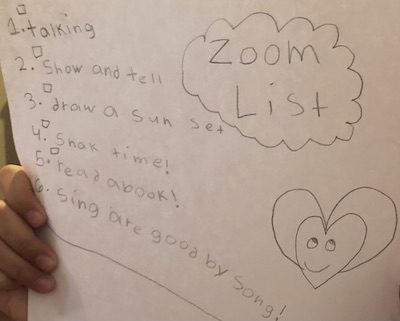 Zoom
List
1. talking
2. Show and tell
3. draw a sun set
4. Snak time!
5. read a book!
6. Sing are good by song!